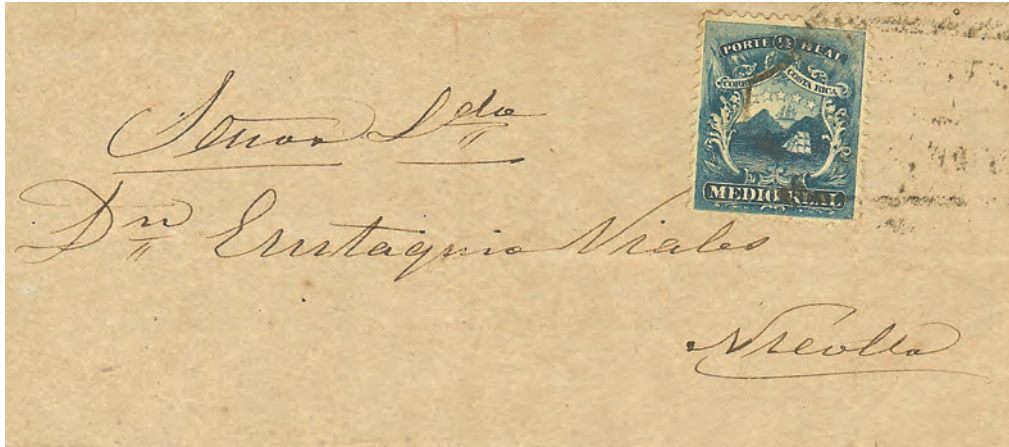 PORTE ½ REAL
CORREOS COSTA RICA
MEDIO REAL
Señor Ldo
Dn Eustaquio Viales
Nicolla